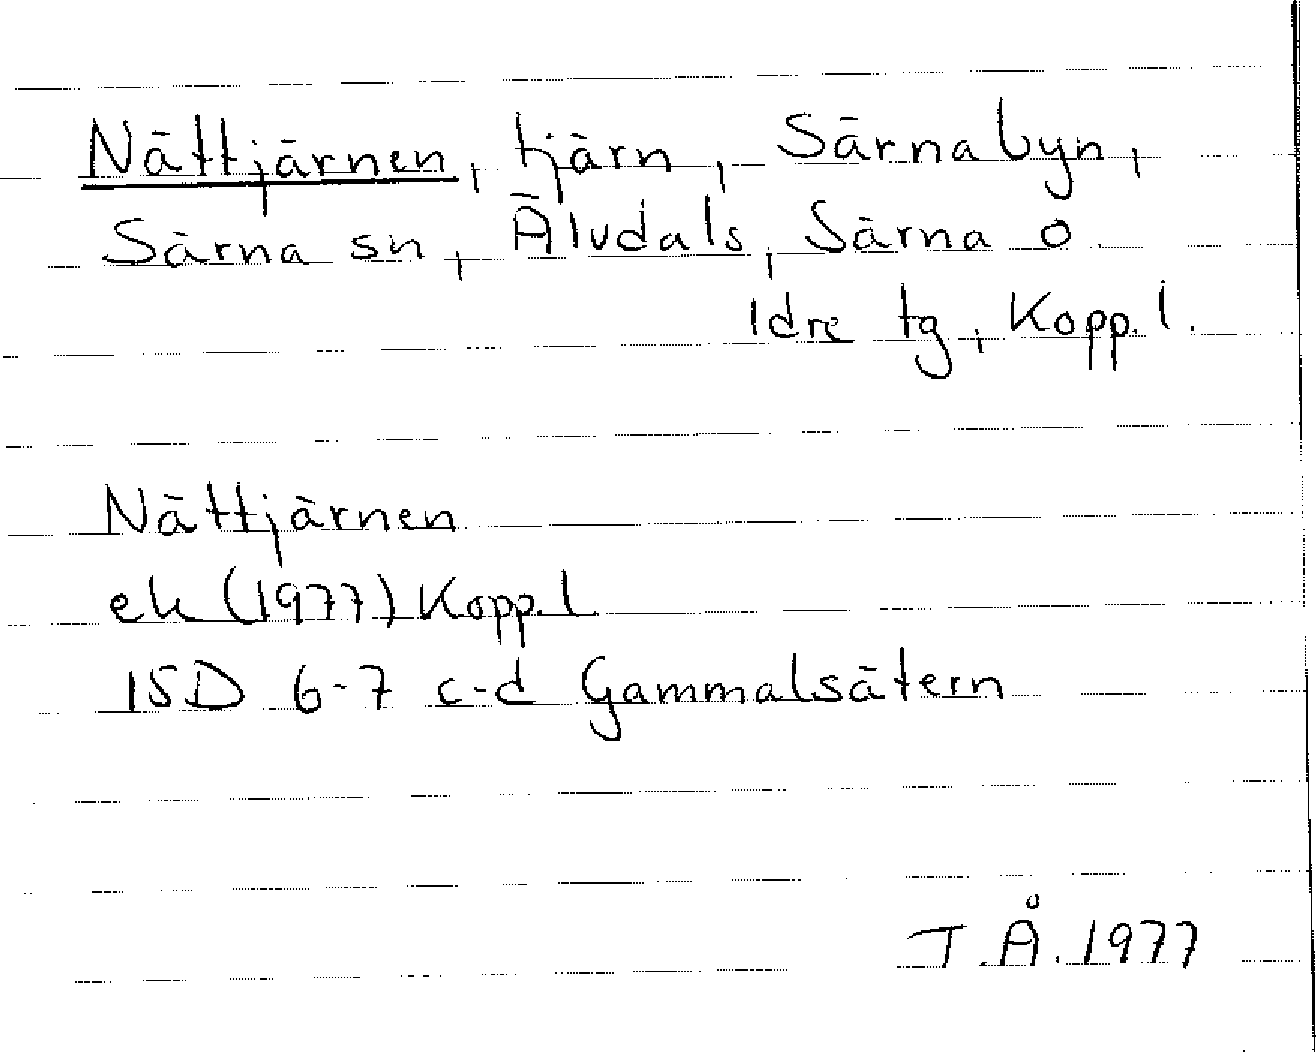 Nättjärnen, tjärn, Särnabyn,
Särna sn, Älvdals, Särna o
Idre tg, Kopp. l.
Nättjärnen
ek (1977) Kopp. l
15D 6-7 c-d Gammalsätern
T.Å. 1977